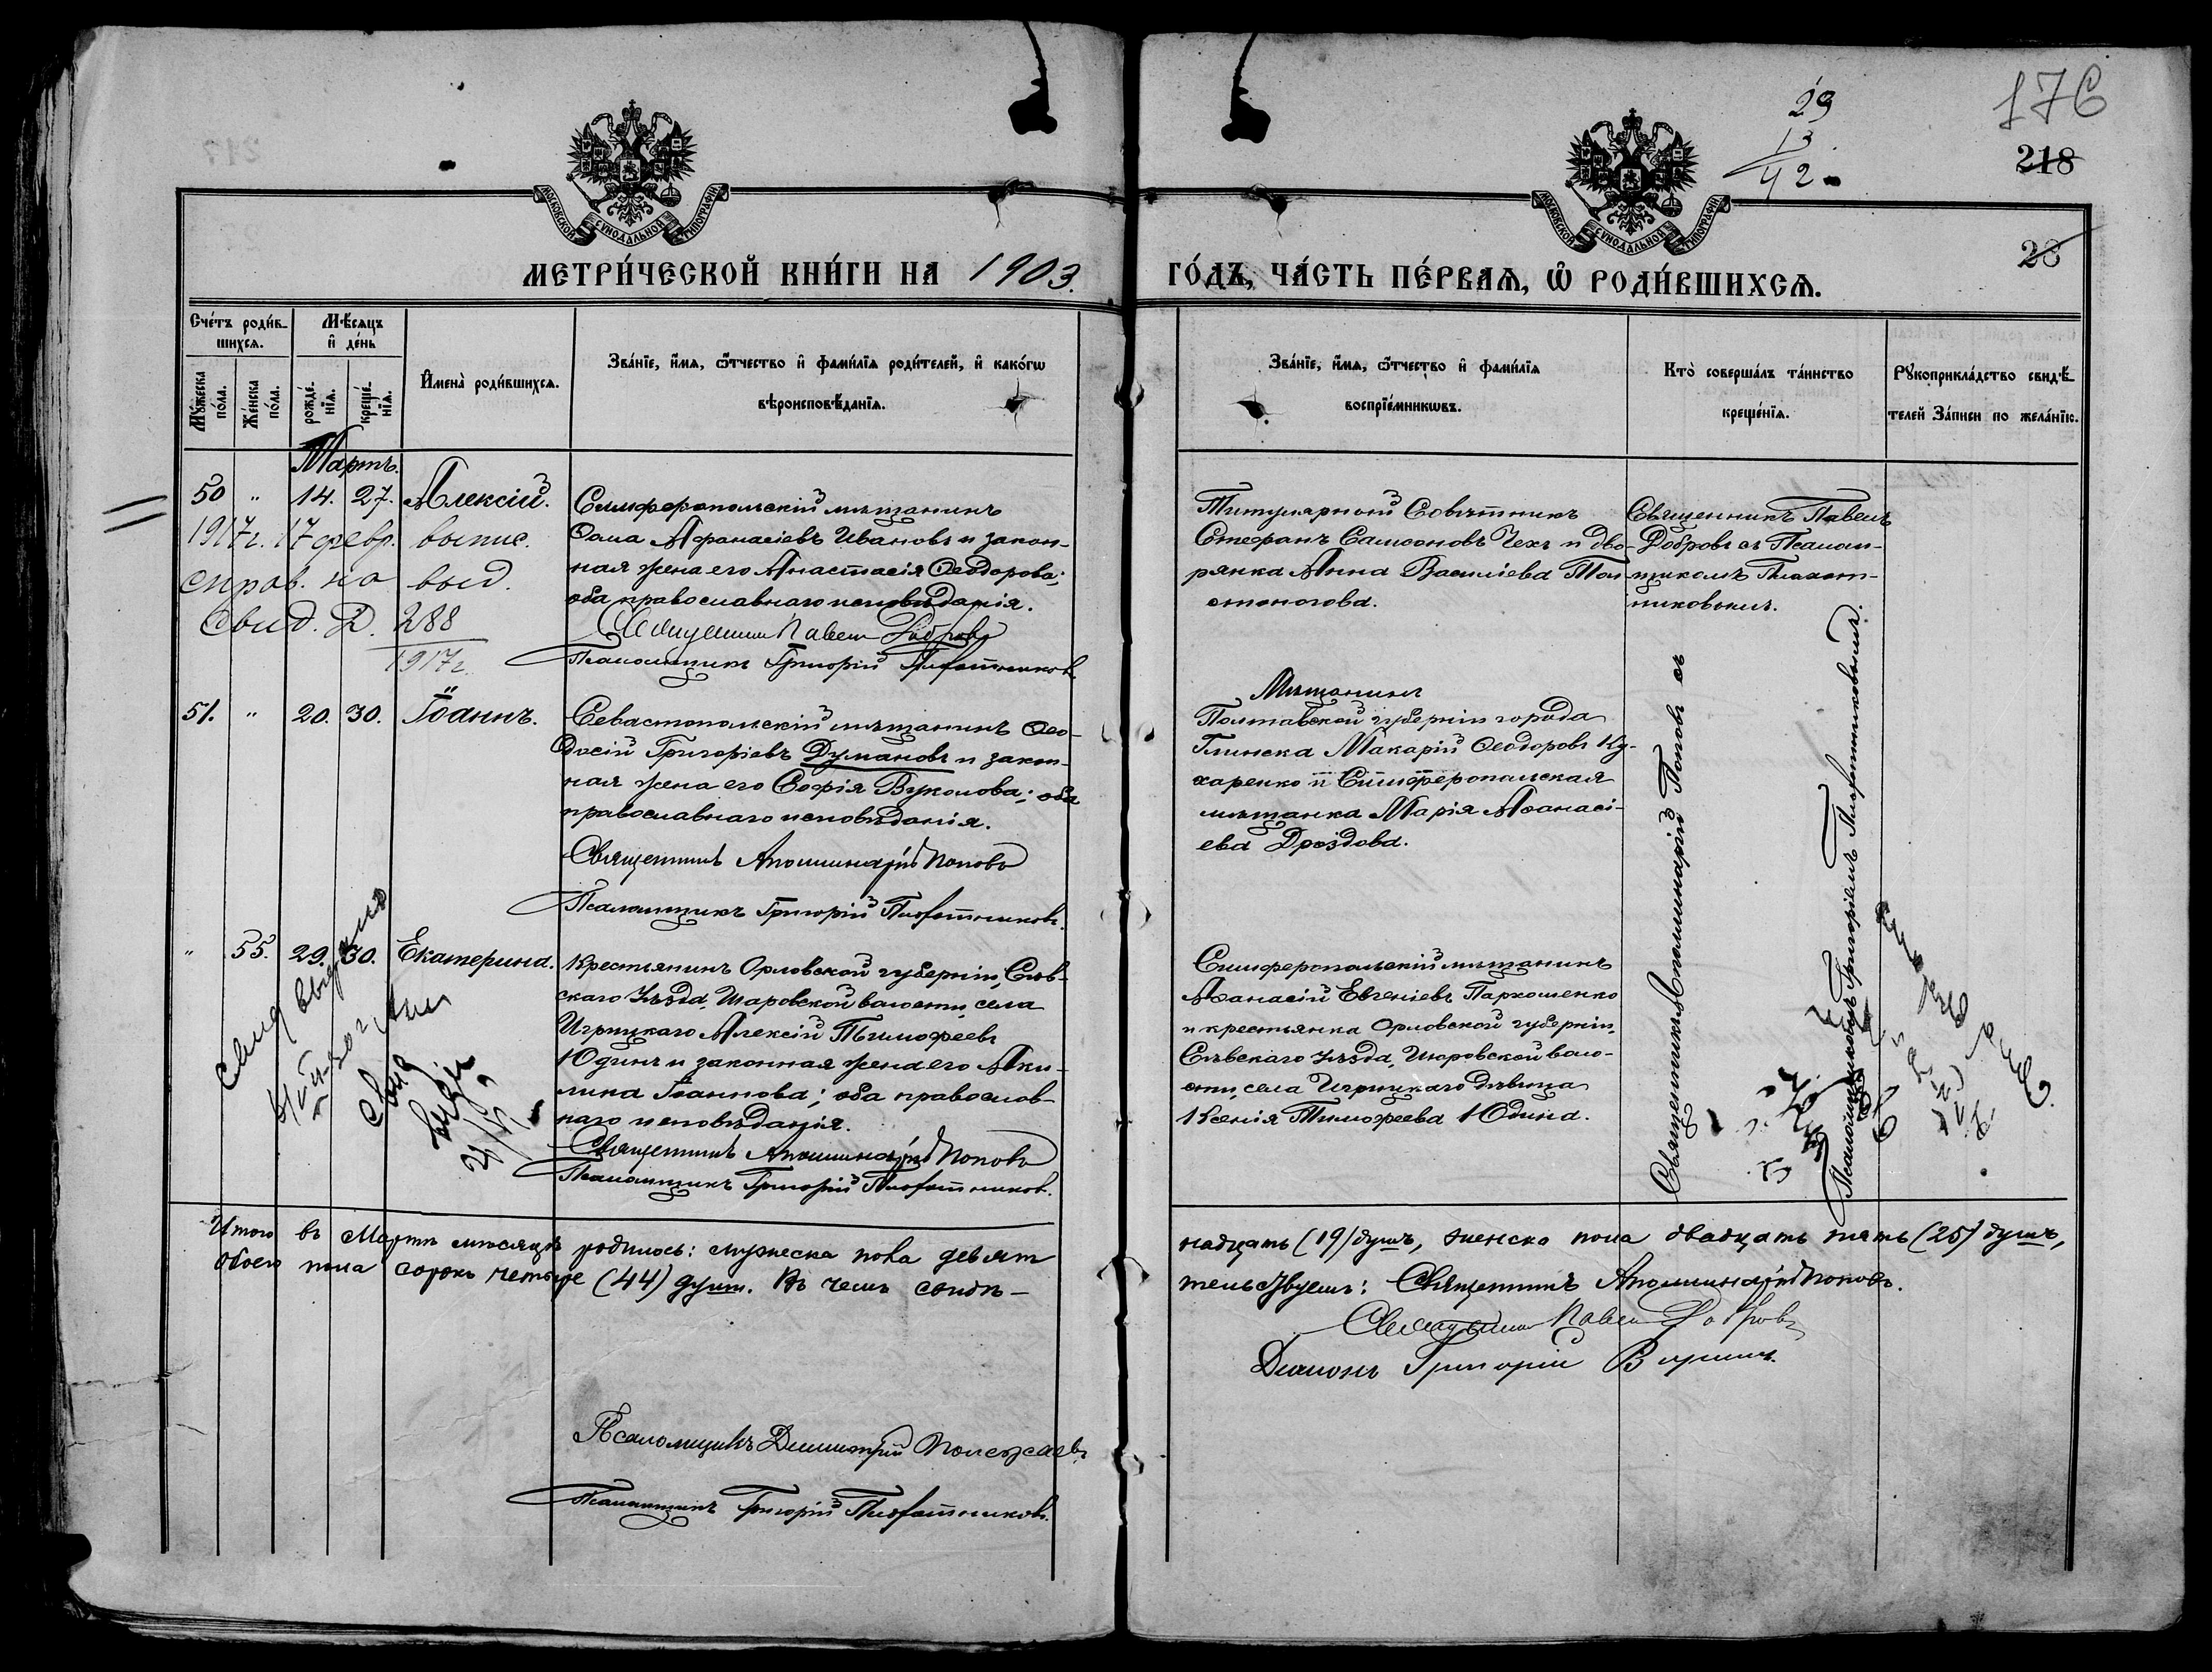 29
13
42
176
218
28
МОСКОВСКОЙ СѴНОДАЛЬНОЙ ТИПОГРАФІИ
МОСКОВСКОЙ СѴНОДАЛЬНОЙ ТИПОГРАФІИ
МЕТРИ́ЧЕСКОЙ КНИ́ГИ НА 1903.
ГО́ДЪ, ЧА́СТЬ ПЕ́РВАѦ, Ѿ РОДИ́ВШИХСѦ.
Сче́тъ роди́в-
шихсѧ.
Мѣ́сѧцъ
и҆ де́нь
Мꙋ́жеска
по́ла.
Же́нска
по́ла.
рожде́-
нїѧ.
креще́-
нїѧ.
И҆мена̀ роди́вшихсѧ.
Зва́нїе, и҆́мѧ, ѻ҆́тчество и҆ фами́лїѧ роди́телей, и҆ како́гѡ
вѣроисповѣ́данїѧ.
Зва́нїе, и҆́мѧ, ѻ҆́тчество и҆ фами́лїѧ
воспрїе́мникѡвъ.
Кто̀ соверша́лъ та́инство
креще́нїѧ.
Рꙋкоприкла́дство свидѣ́-
телей за́писи по жела́нїю.
Мартъ.
50 " 14. 27. Алексій.
1917г. 17 февр. выпис.
справ. на выд.
свид. №. 288
1917г.
Симферопольскій мѣщанинъ
Ѳома Аѳанасіевъ Ивановъ и закон-
ная жена его Анастасія Ѳеодорова;
оба православнаго исповѣданія.
Священникъ Павелъ Добровъ
Псаломщикъ Григорій Плохотниковъ.
Титулярный Совѣтникъ
Стефанъ Самсоновъ Чехъ и дво-
рянка Анна Василіева Тол-
стоногова.
Священникъ Павелъ
Добровъ съ Псалом-
щикомъ Плохот-
никовымъ.
51. " 20. 30. Іоаннъ.
Севастопольскій мѣщанинъ Ѳео-
досій Григоріевъ Думановъ и закон-
ная жена его Софія Вуколова; оба
православнаго исповѣданія.
Священникъ Аполлинарій Поповъ
Псаломщикъ Григорій Плохотниковъ.
Мѣщанинъ
Полтавской губерніи города
Глинска Макарій Ѳеодоровъ Ку-
харенко и Симферопольская
мѣщанка Марія Аѳанасі-
ева Дроздова.
Священникъ Аполлинарій Поповъ съ
Псаломщикомъ Григоріемъ Плохотниковымъ.
" 55. 29. 30. Екатерина.
Крестьянинъ Орловской губерніи, Сѣв-
скаго уѣзда, Шаровской волости, села
Игрицкаго Алексій Тимофеевъ
Юдинъ и законная жена его Аки-
лина Іоаннова; оба православ-
наго исповѣданія.
Священникъ Аполлинарій Поповъ
Псаломщикъ Григорій Плохотниковъ.
Симферопольскій мѣщанинъ
Аѳанасій Евгеніевъ Пархоменко
и крестьянка Орловской губерніи,
Сѣвскаго уѣзда, Шаровской воло-
сти, села Игрицкаго дѣвица
Ксенія Тимофеева Юдина.
Итого въ Мартѣ мѣсяцѣ родилось: мужеска пола девят
надцать (19) душъ, женска пола двадцать пять (25) душъ,
обоего пола сорокъ четыре (44) душ. Въ чемъ свидѣ-
тельствуемъ: Священникъ Аполлинарій Поповъ.
Священникъ Павелъ Добровъ
Діаконъ Григорій
Псаломщикъ Димитрій Полежаевъ
Псаломщикъ Григорій Плохотниковъ.